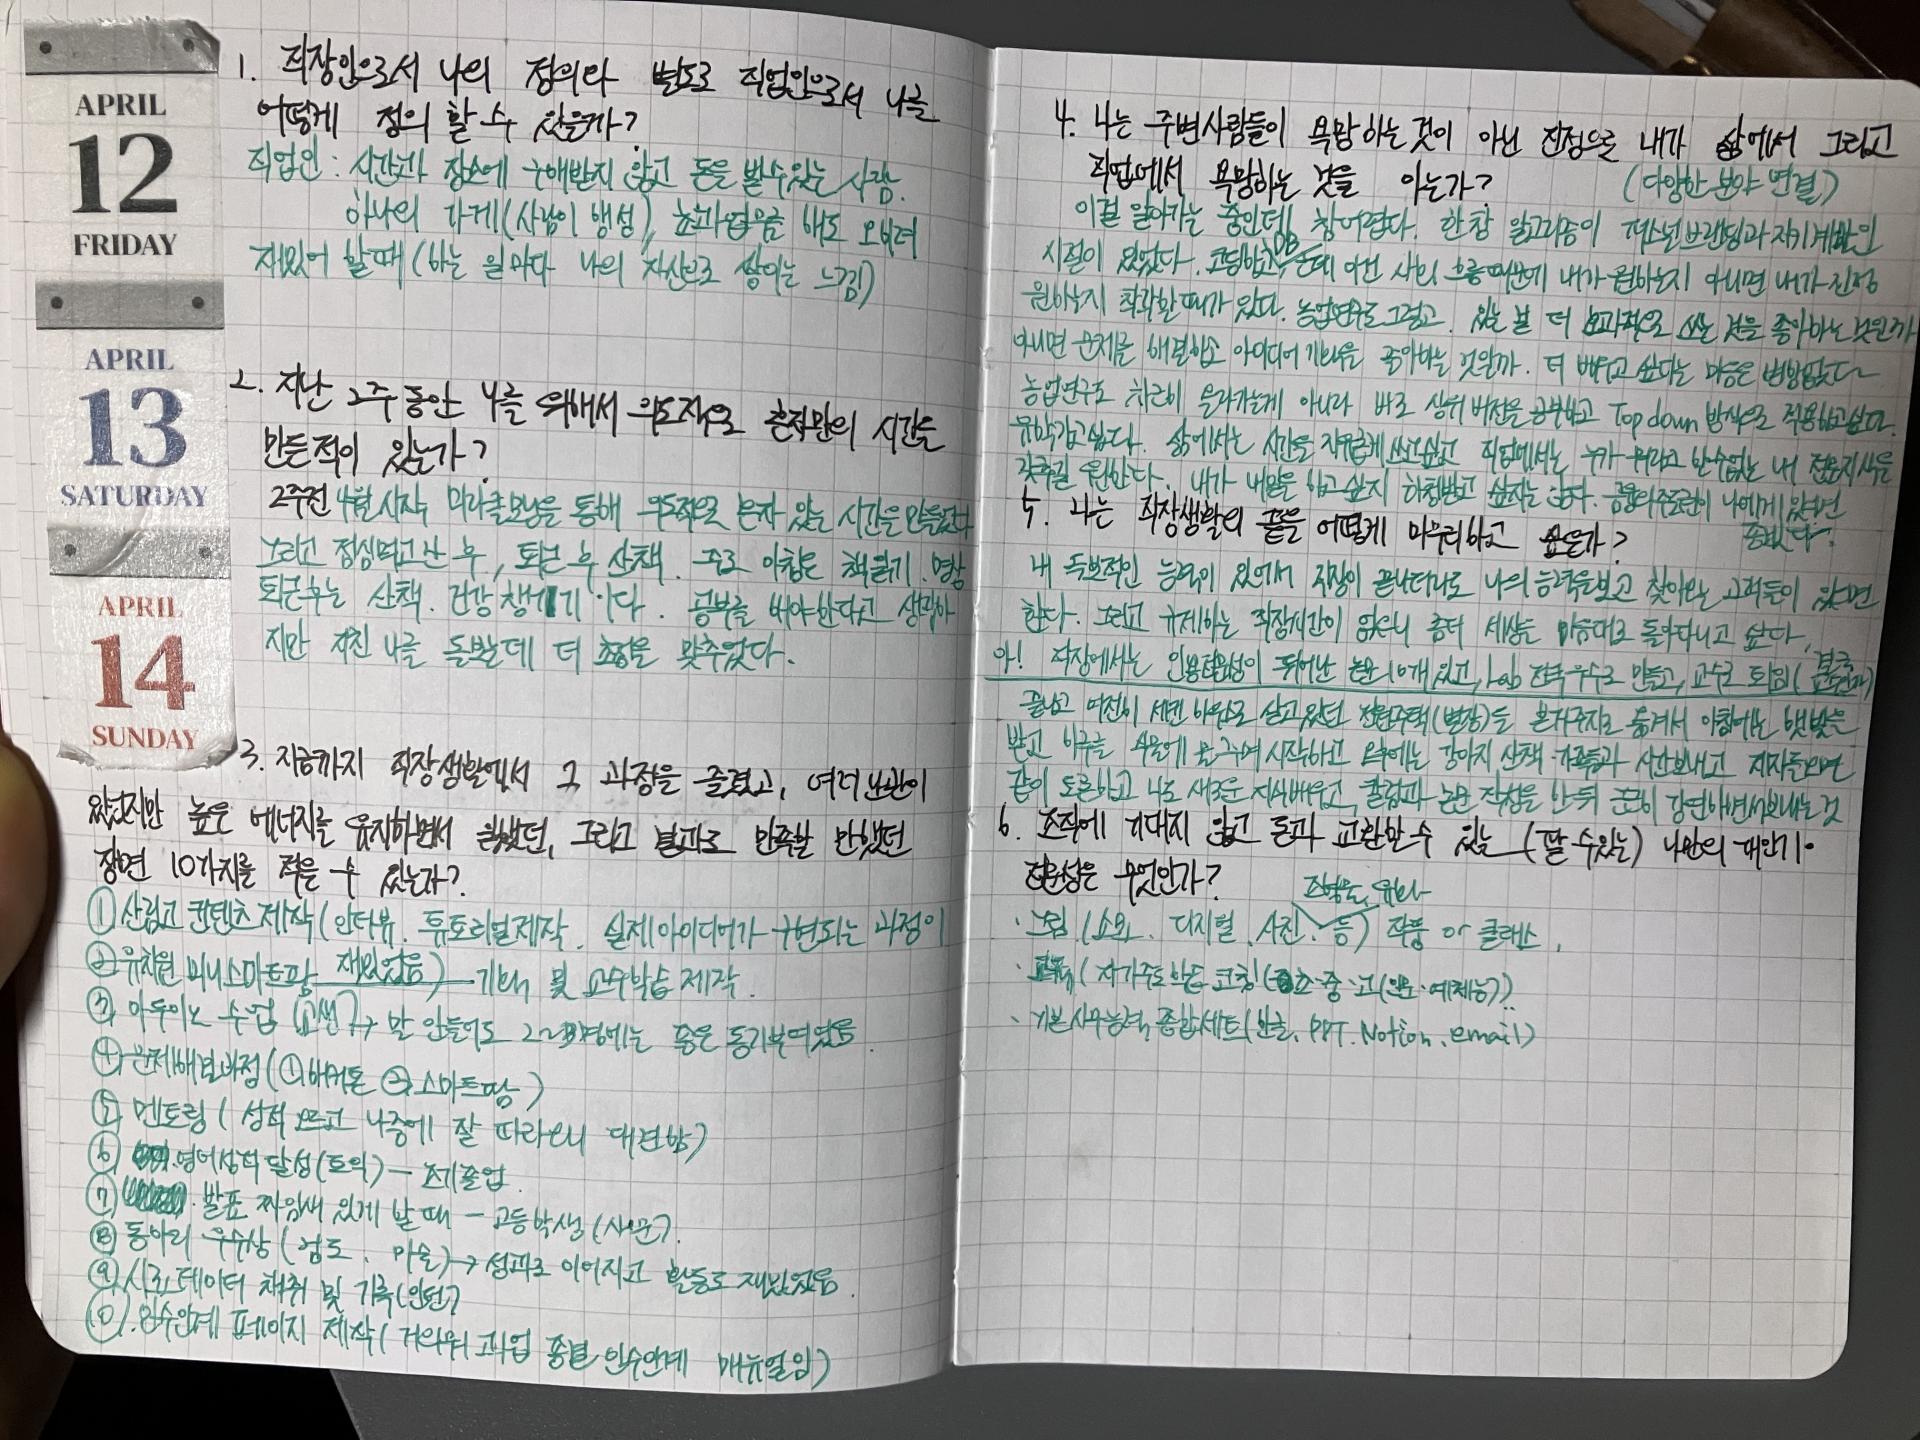 APRIL
12
FRIDAY
APRIL
13
SATURDAY
APRIL
14
SUNDAY
1. 직장인으로서 나의 정의와 별도로 직업인으로서 나를
어떻게 정의 할 수 있는가?
직업인 : 시간과 장소에 구애받지 않고 돈을 벌 수 있는 사람.
하나의 가게(사람이 행성), 해도 오히려
재밌어 할 때 (하는 일마다 나의 자산으로 쌓이는 느낌)
2. 지난 2주 동안 나를 위해서 의도적으로 혼자만의 시간을
만든적이 있는가?
2주전 4월 시작, 미라클모닝을 통해 의도적으로 혼자 있는 시간을 만들었다
그리고 점심먹고 난 후, 퇴근 후 산책. 주로 아침은 책읽기. 명상
퇴근후는 산책. 건강 챙기기 이다. 공부를 해야한다고 생각하
지만 지친 나를 돌보는데 더 초점을 맞추었다.
3. 지금까지 직장생활에서 그 과정을 즐겼고, 여러 난관이
있었지만 높은 에너지를 유지하면서 일했던, 그리고 결과로 만족할 만했던
장면 10가지를 적을 수 있는가?
① 산림고 컨텐츠 제작(인터뷰. 튜토리얼제작. 실제 아이디어가 구현되는 과정이
재밌었음)
② 유치원 미니스마트팜 기획 및 교수학습 제작.
③ 아두이노 수업 (고생) → 말 안들어도 2~3명에는 좋은 동기부여였음.
④ 문제해결과정 (① 해커톤 ② 스마트팜)
⑤ 멘토링 ( 성적 오르고 나중에 잘 따라오니 대견함)
⑥ 영어성적 달성(토익) – 조기졸업
⑦ 발표 짜임새 있게 할 때 – 고등학생 (사문).
⑧ 동아리 우수상 (검도. 마술) → 성과로 이어지고 활동도 재밌었음.
⑨ 시료 데이터 채취 및 기록(인턴)
⑩ 인수인계 페이지 제작( 과업 종결 인수인계 매뉴얼임)
4. 나는 주변사람들이 욕망하는 것이 아닌 진정으로 내가 삶에서 그리고
직업에서 욕망하는 것을 아는가?
(다양한 분야 연결)
이걸 알아가는 중인데 참 어렵다. 한참 알고리즘이 퍼스널브랜딩과 자기계발인
시절이 있었다. 코딩하고 DB 이건 사회 흐름때문에 내가 원하는지 아니면 내가 진정
원하는지 착각할 때가 있다. 농업연구도 그렇고. 있는 걸 더 효과적으로 쓰는 것을 좋아하는 것인가
아니면 문제를 해결하는 아이디어 기획을 좋아하는 것일까. 더 배우고 싶다는 마음은 변함없다
농업연구도 차근히 올라가는게 아니라 바로 상위 버전을 공부하고 Top down 방식으로 적용하고싶다.
유학가고싶다. 삶에서는 시간을 자유롭게 쓰고싶고 직업에서는 누가 뭐라고 할수없는 내 전문지식을
갖추길 원한다. 내가 내일을 하고 싶지 하청받고 싶지는 않다. 나에게 있으면
좋겠다.
5. 나는 직장생활의 끝을 어떻게 마무리하고 싶은가?
내 독보적인 능력이 있어서 직장이 끝나더라도 나의 능력을보고 찾아오는 고객들이 있으면
한다. 그리고 규제하는 직장시간이 없으니 좀더 세상을 마음대로 돌아다니고 싶다.
아! 직장에서는 인용 뛰어난 논문 10개 있고, Lab 전국 우수로 만들고, 교수로 퇴임 (
끝나고 여전히 세컨 하우스로 살고있던 전원주택(별장)을 본거주지로 옮겨서 아침에는 햇빛을
받고 하루를 시작하고 오후에는 강아지 산책. 가족들과 시간보내고 제자들오면
같이 토론하고 나도 새로운 지식배우고, 칼럼과 논문 작성을 한 뒤 강연하면서보내는 것
6. 조직에 기대지 않고 돈과 교환할 수 있는 (팔 수 있는) 나만의 개인기·
전문성은 무엇인가?
· 그림 ( 디지털. 사진. 등) 작품 or 클래스.
· (자기주도 학습 코칭 (초·중·고
· 기본 사무능력 종합세트(한글. PPT. Notion. email)